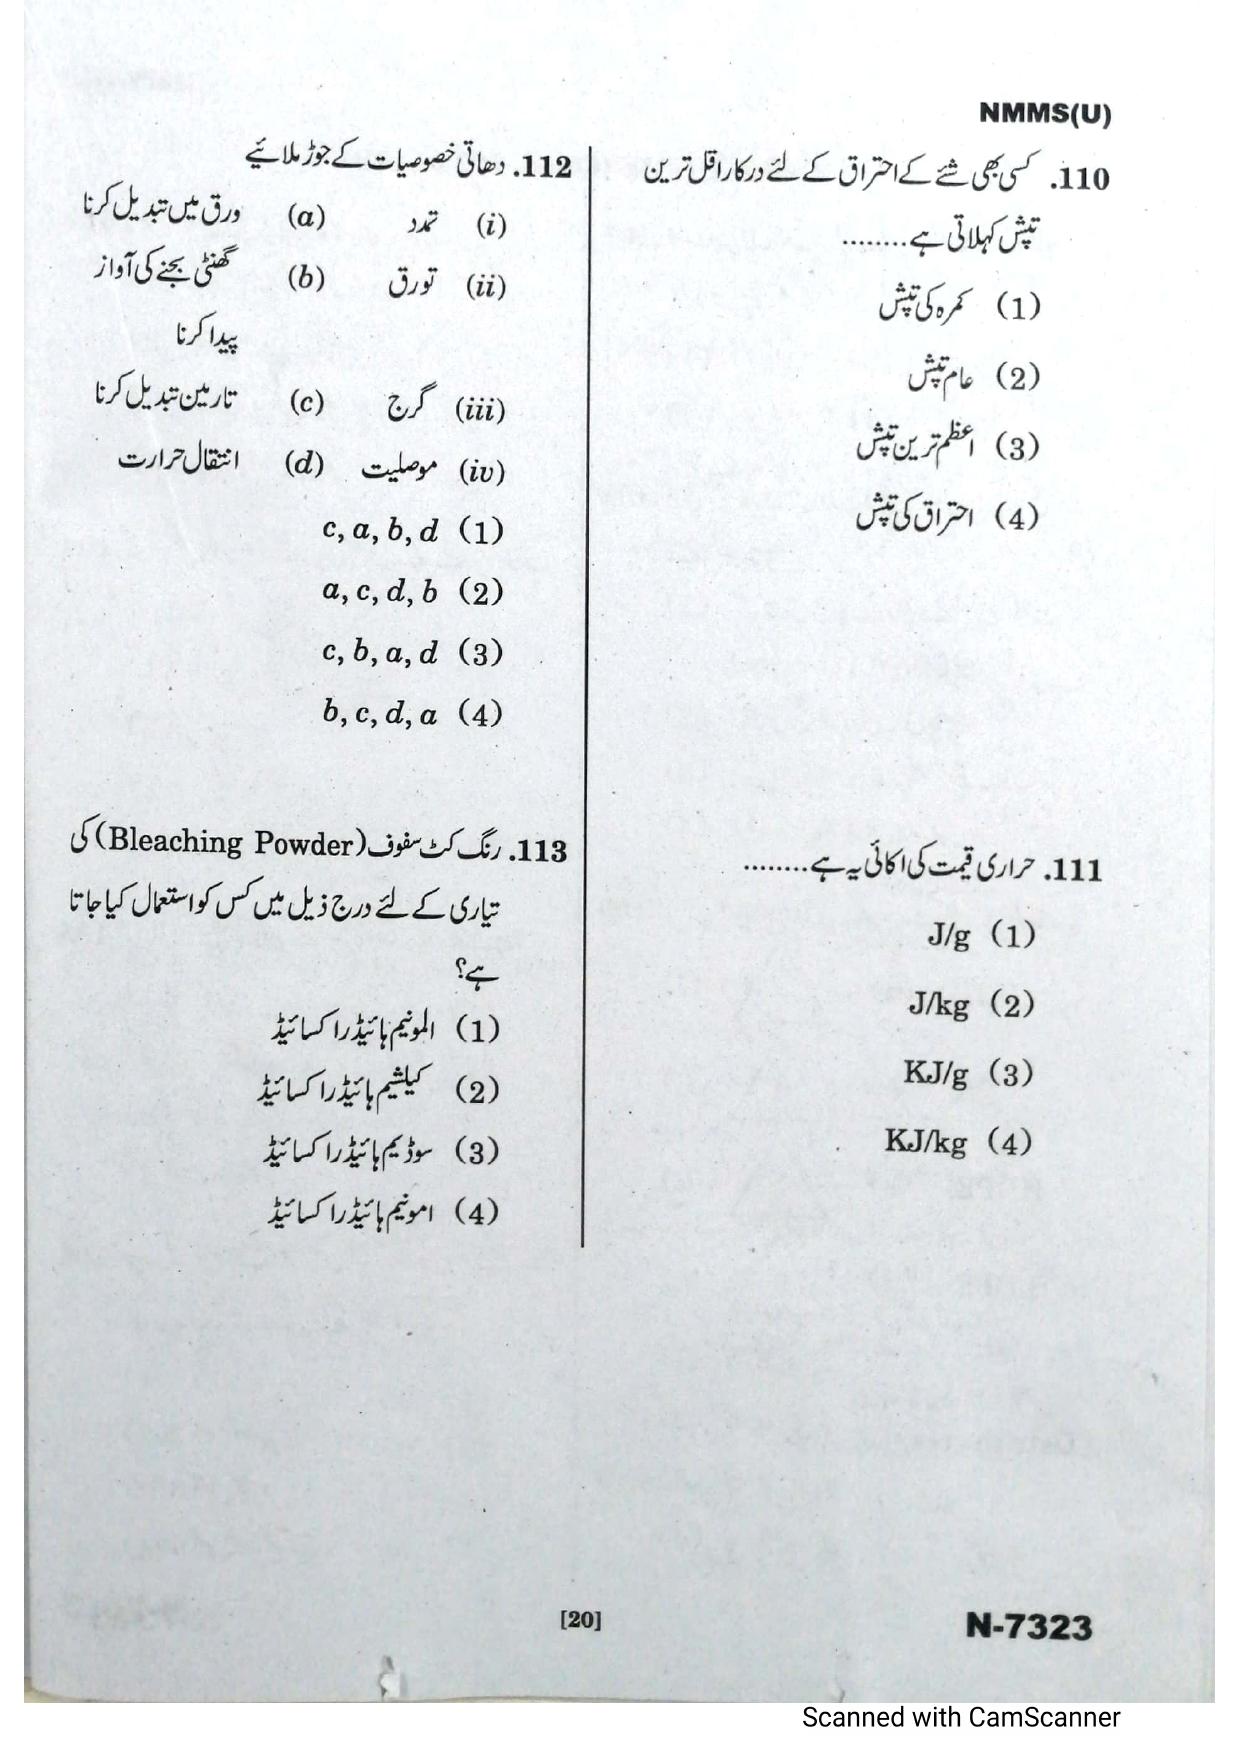 NMMS(U)
110. کسی بھی شئے کے احتراق کے لئے درکار اقل ترین
تپش کہلاتی ہے........
(1) کمرہ کی تپش
(2) عام تپش
(3) اعظم ترین تپش
(4) احتراق کی تپش
111. حراری قیمت کی اکائی یہ ہے........
(1) J/g
(2) J/kg
(3) KJ/g
(4) KJ/kg
112. دھاتی خصوصیات کے جوڑ ملائیے
(i) تمدد (a) ورق میں تبدیل کرنا
(ii) تورق (b) گھنٹی بجنے کی آواز
پیدا کرنا
(iii) گرج (c) تار مین تبدیل کرنا
(iv) موصلیت (d) انتقال حرارت
(1) c, a, b, d
(2) a, c, d, b
(3) c, b, a, d
(4) b, c, d, a
113. رنگ کٹ سفوف (Bleaching Powder) کی
تیاری کے لئے درج ذیل میں کس کو استعمال کیا جاتا
ہے؟
(1) المونیم ہائیڈرا کسائیڈ
(2) کیلشیم ہائیڈرا کسائیڈ
(3) سوڈیم ہائیڈرا کسائیڈ
(4) امونیم ہائیڈرا کسائیڈ
[20]
N-7323
Scanned with CamScanner